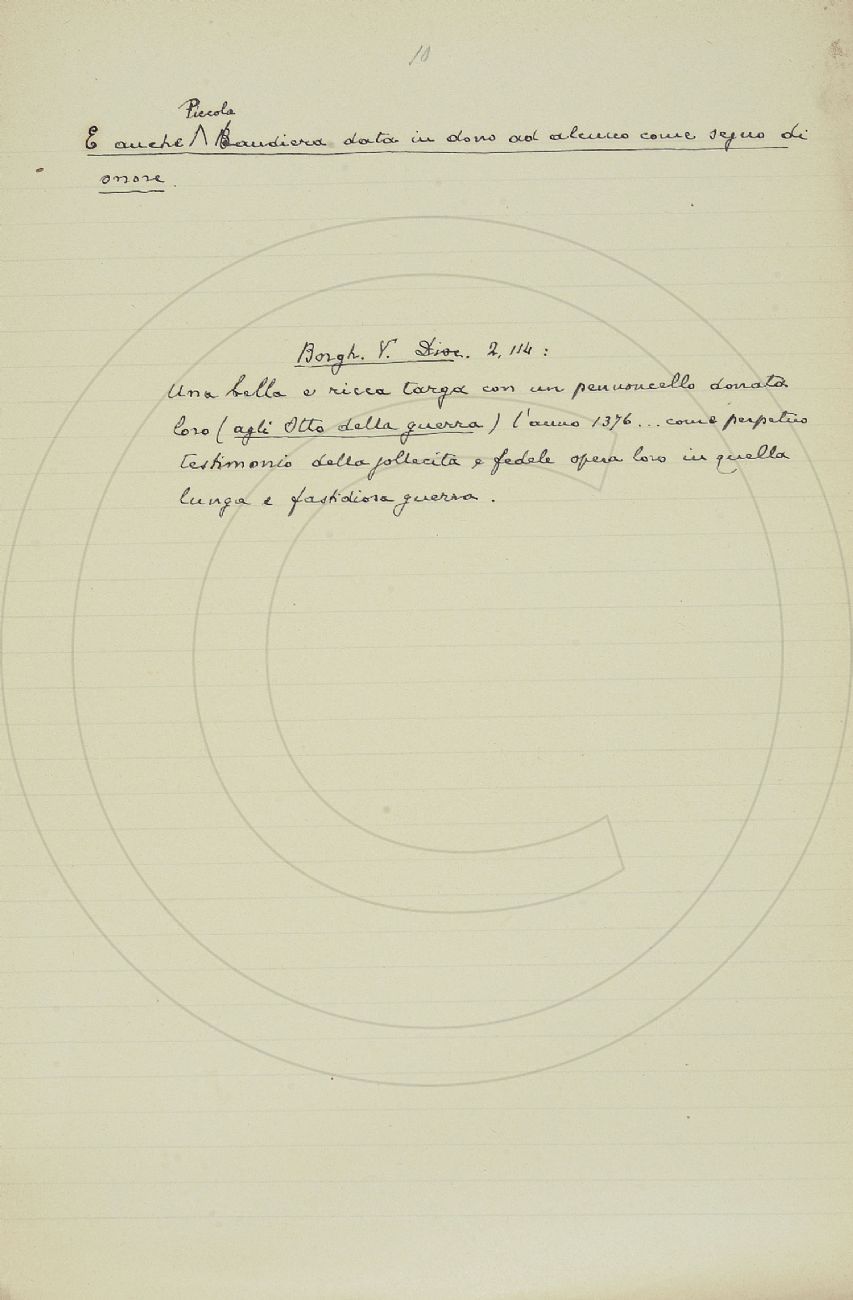 10
Piccola
E anche Λ Bandiera data in dono ad alcuno come segno di
onore.
Borgh. V. Disc. 2, 114 :
Una bella e ricca targa con un pennoncello donata
loro ( agli Otto della guerra ) l'anno 1376 ... come perpetuo
testimonio della sollecita e fedele opera loro in quella
lunga e fastidiosa guerra .